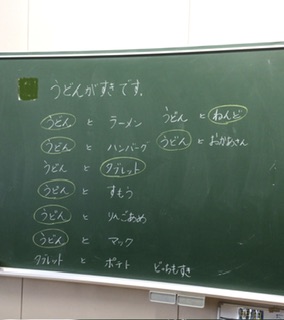 うどんがすきです。
うどん と ラーメン
うどん と ハンバーグ
うどん と タブレット
うどん と すもう
うどん と りんごあめ
うどん と マック
タブレット と ポテト どっちもすき
うどん と ねんど
うどん と おかあさん